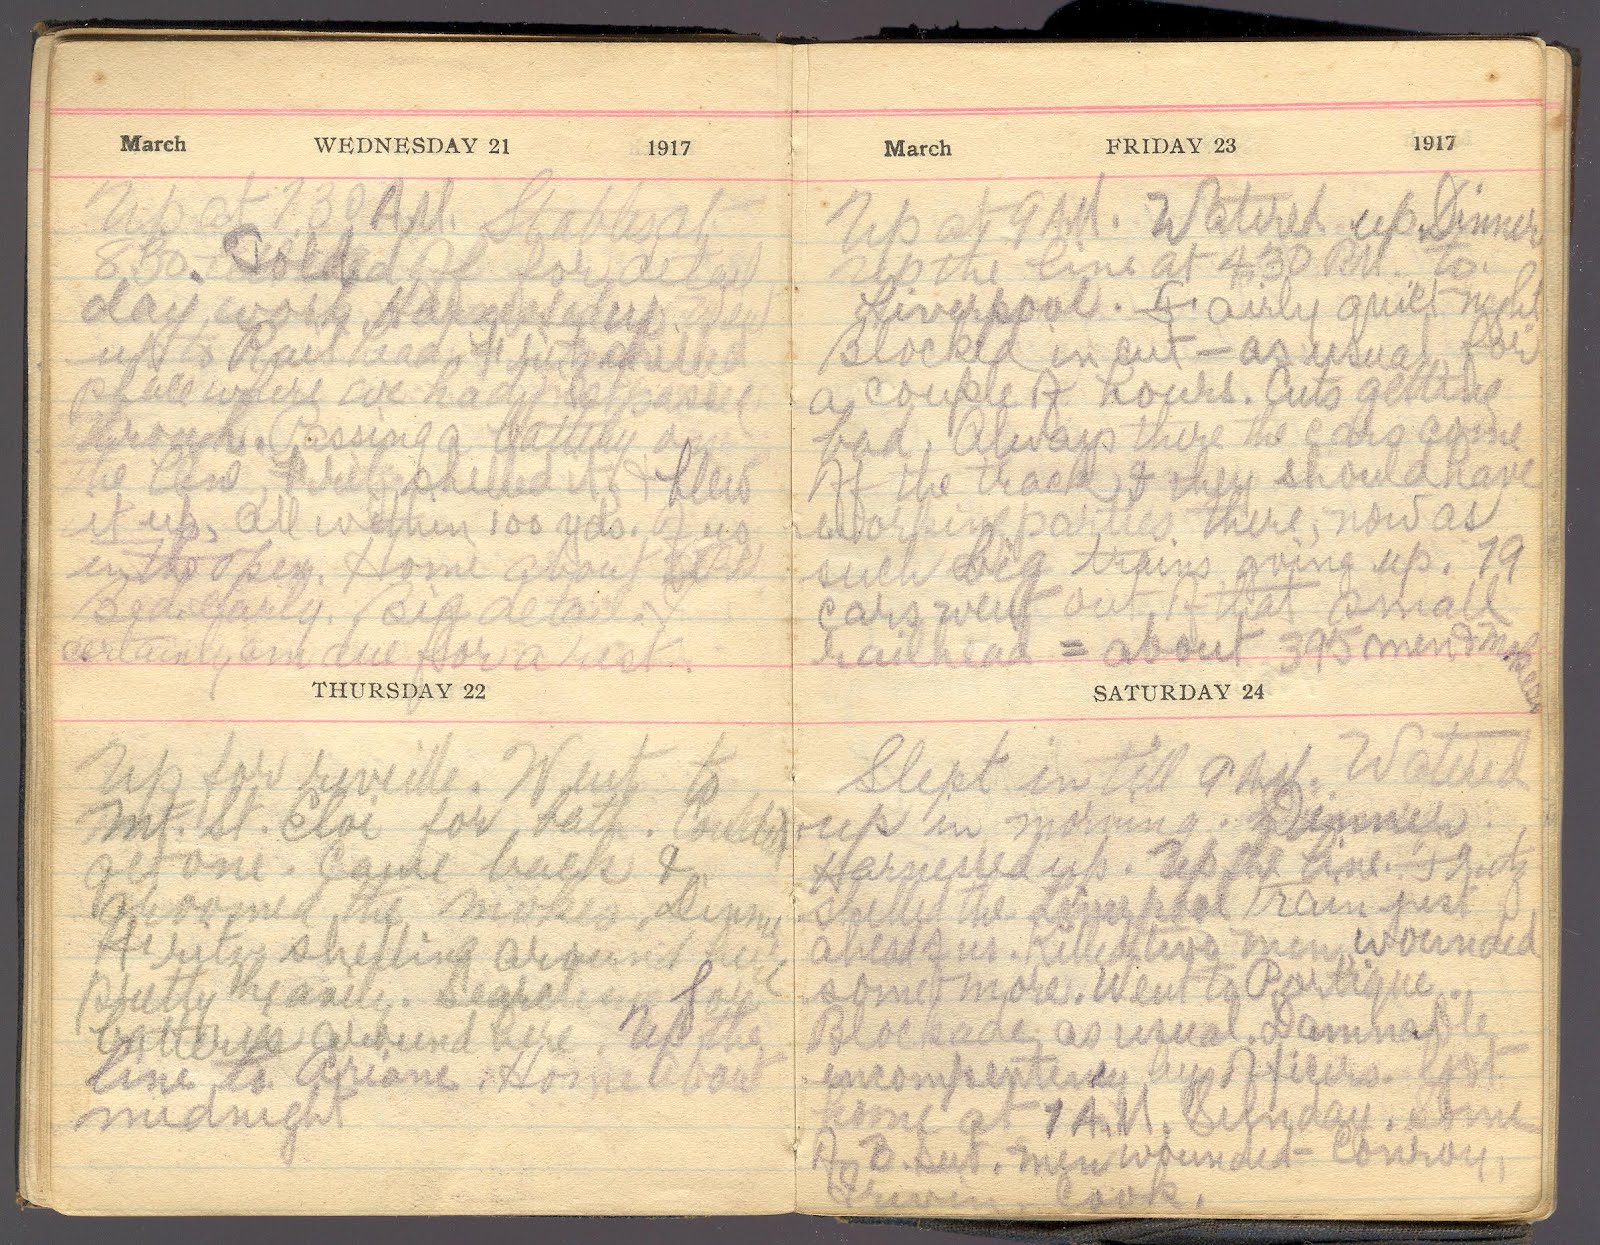 March WEDNESDAY 21 1917
Up at 7.30 A.M. Stables at
8.30. Told off for detail
day work. Harnessed up. Went
up to Railhead. Fritz shelled
place where we had just passed
through. Passing a battery on
the line, Fritz shelled it & blew
it up. All within 100 yds. of us
in the open. Home about
Bed early. Big detail. I
certainly am due for a rest.
THURSDAY 22
Up for reveille. Went to
Mt. St. Eloi for bath. Couldn't
get one. Came back &
groomed the mokes. Dinner
Fritz shelling around here
pretty heavily. Searching for
batterys around here. Up the
line to Ariane. Home about
midnight
March FRIDAY 23 1917
Up at 9 A.M. Watered up. Dinner
up the line at 4.30 P.M. to
Liverpool. Fairly quiet night
Blocked in cut — as usual for
a couple of hours. Cuts getting
bad. Always there the cars come
off the track & they should have
working parties there, now as
such big trains going up. 79
cars went out of that small
railhead = about 395 men & mokes
SATURDAY 24
Slept in till 9 A.M. Watered
up in morning. Dinner.
Harnessed up. Up the line. Fritz
shelled the Liverpool train just
ahead of us. Killed two men, wounded
some more. Went to Portique.
Blockade, as usual. Damnable
incompentency by officers. Got
home at 1 A.M. Sunday. Some
of B. Sub. men wounded – Conroy,
Irwin, Cook.